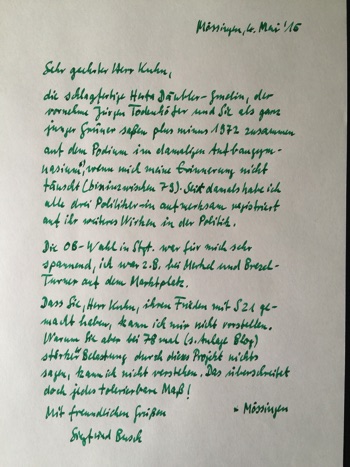 Mössingen, 6. Mai '15
Sehr geehrter Herr Kuhn,
die schlagfertige Herta Däubler-Gmelin, der
vornehme Jürgen Todenhöfer und Sie als ganz
junger Grüner saßen plus minus 1972 zusammen
auf dem Podium im damaligen Aufbaugym-
nasium, wenn mich meine Erinnerung nicht
täuscht (bin inzwischen 79). Seit damals habe ich
alle drei Politiker-in aufmerksam registriert
auf ihr weiteres Wirken in der Politik.
Die OB-Wahl in Stgt. war für mich sehr
spannend, ich war z.B. bei Merkel und Brezel-
Turner auf dem Marktplatz.
Dass Sie, Herr Kuhn, ihren Frieden mit S21 ge-
macht haben, kann ich mir nicht vorstellen.
Warum Sie aber bei 78 mal (s. Anlage Blog)
stärker Belastung durch dieses Projekt nichts
sagen, kann ich nicht verstehen. Das überschreitet
doch jedes tolerierbare Maß!
Mit freundlichen Grüßen
Mössingen
Siegfried Busch